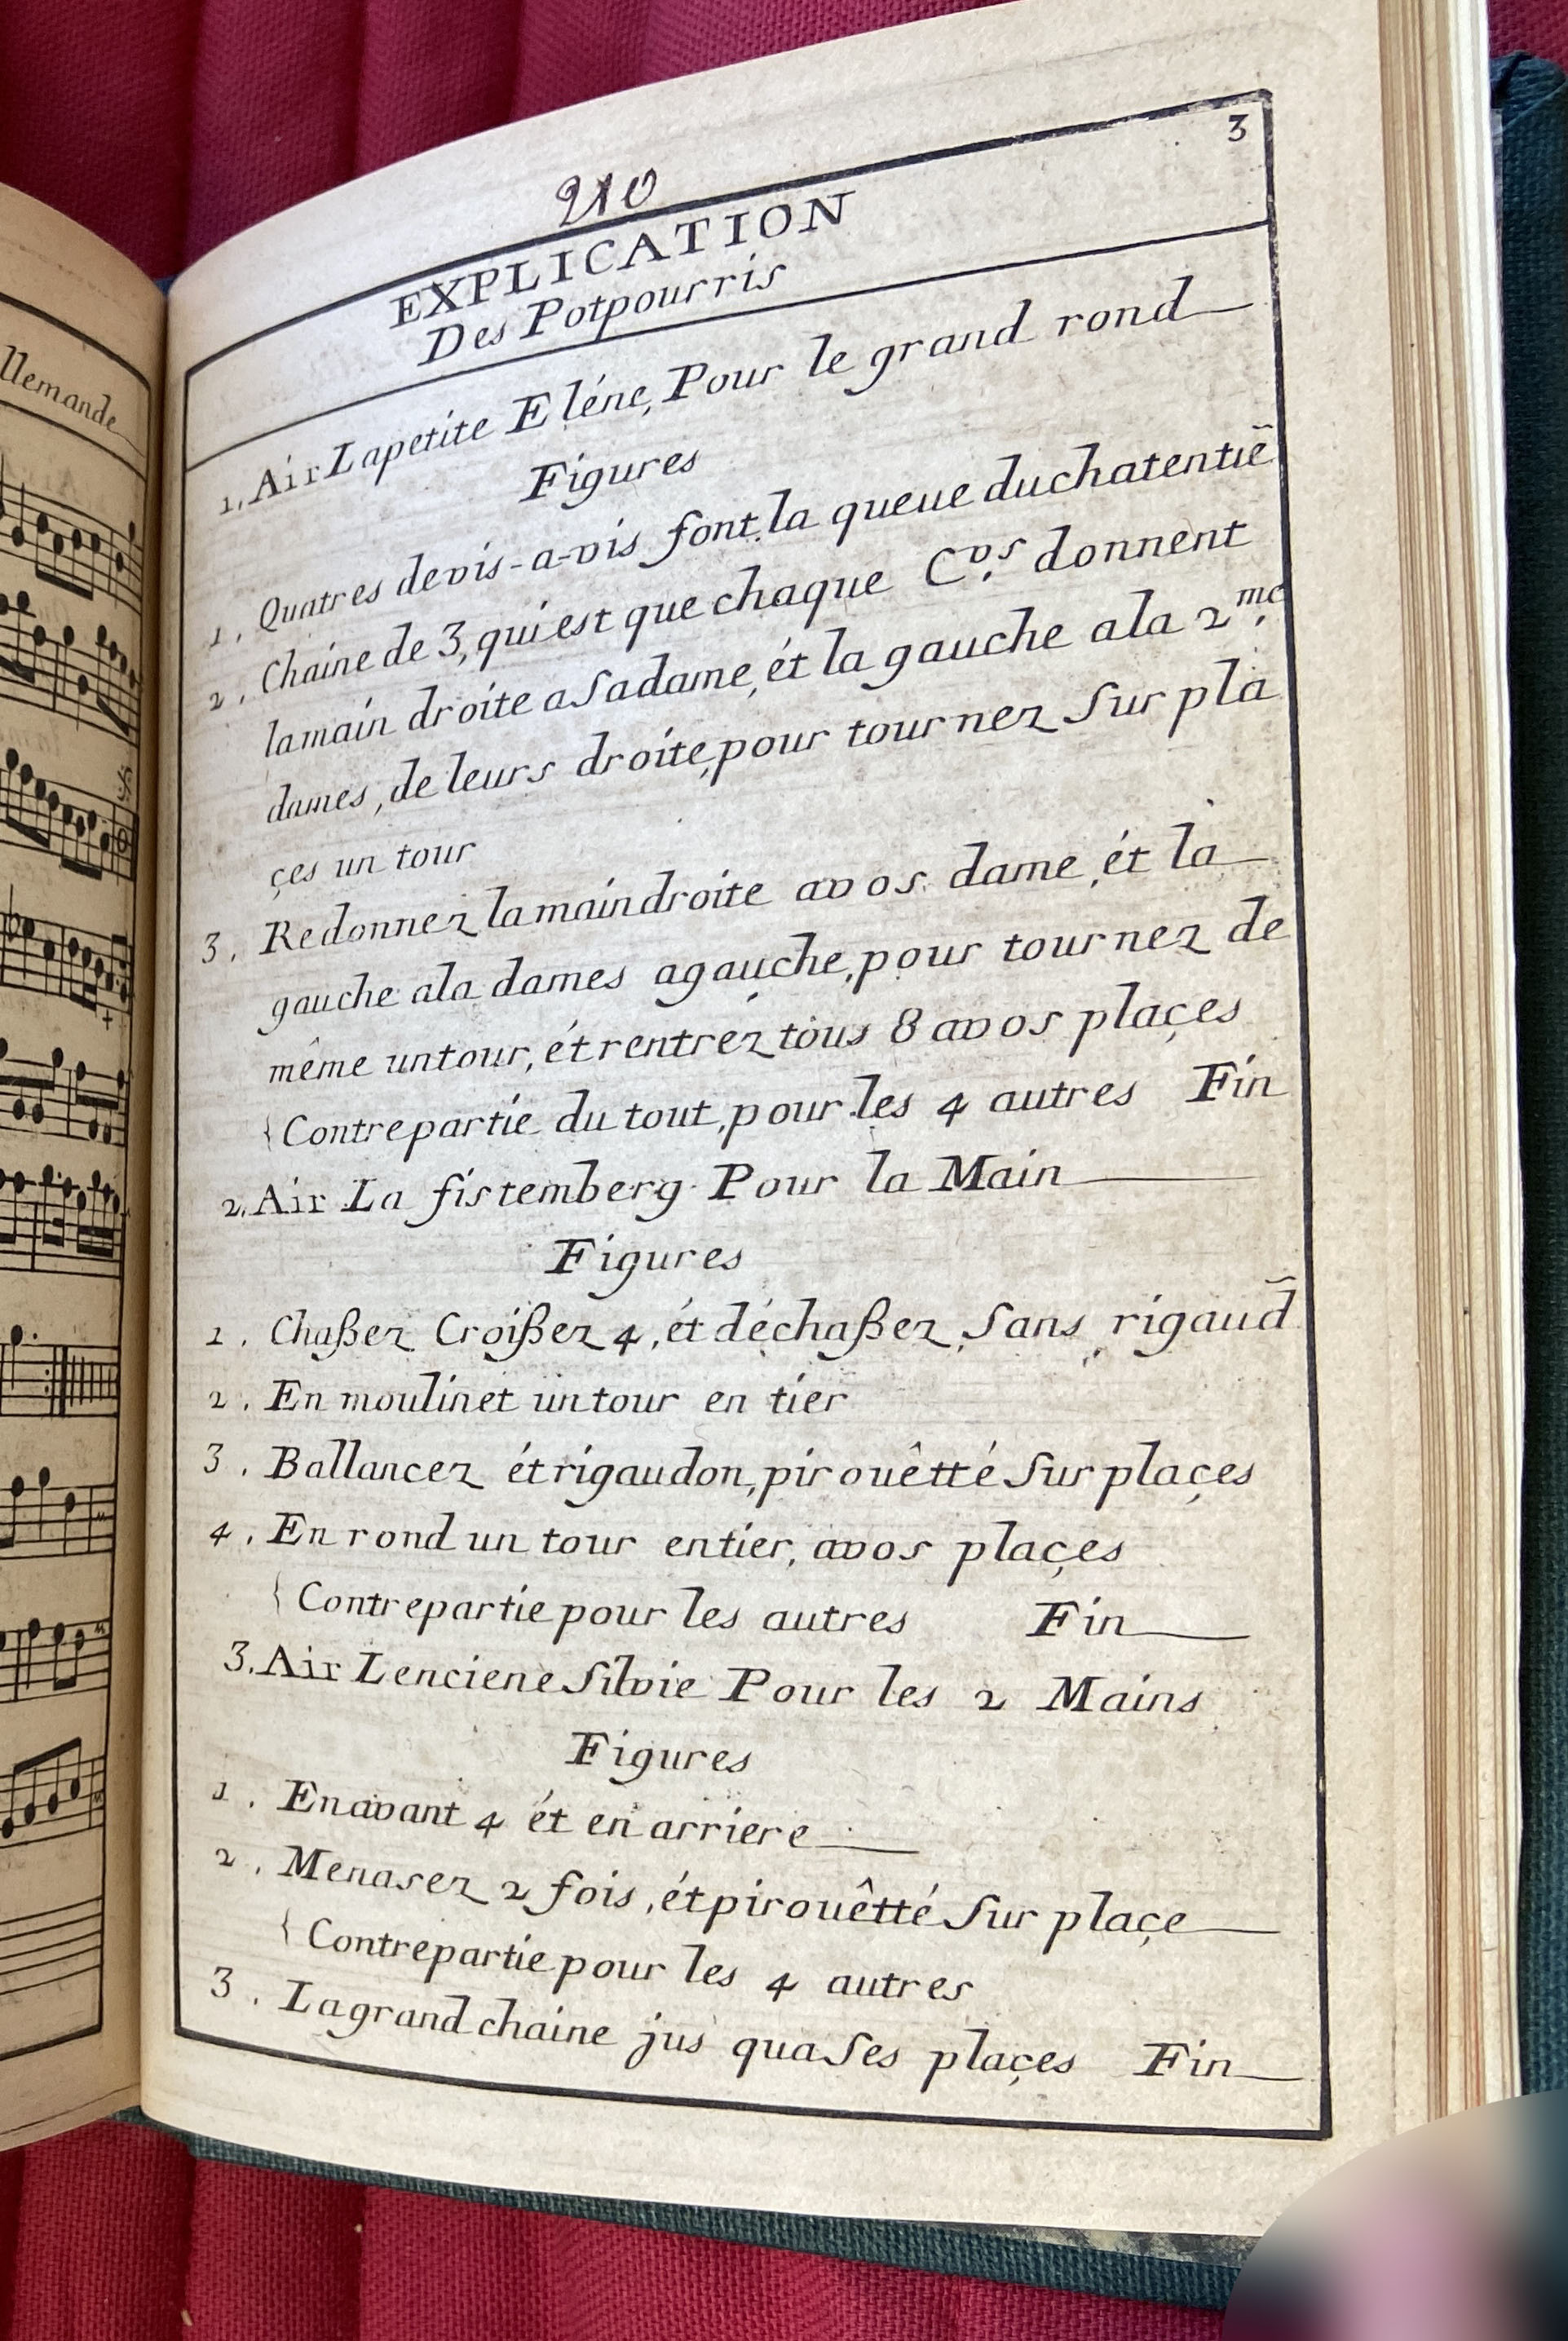 llemande
3
210
EXPLICATION
Des Potpourris
1. Air Lapetite Eléne, Pour le grand rond
Figures
1. Quatres devis-a-vis font la queue duchatentiẽ
2. Chaine de 3, qui est que chaque C.vrs donnent
lamain droite a Sadame, ét la gauche ala 2.me
dames, de leurs droite, pour tournez Sur pla
çes un tour
3. Redonnez lamaindroite avos dame, ét la
gauche ala dames agauche, pour tournez de
même untour, ét rentréz tous 8 avos plaçes
{Contrepartie du tout, pour les 4 autres Fin
2. Air La fistemberg Pour la Main
Figures
1. Chaßez Croißez 4, ét déchaßez, Sans rigaud̃
2. En moulinet untour en tier
3. Ballancez ét rigaudon, pirouêtté Sur plaçes
4. En rond un tour entier, avos plaçes
{Contrepartie pour les autres Fin
3. Air Lenciene Silvie Pour les 2 Mains
Figures
1. Enavant 4 ét en arriere
2. Menasez 2 fois, ét pirouêtté Sur plaçe
{Contrepartie pour les 4 autres
3. Lagrand chaine jus qua Ses plaçes Fin